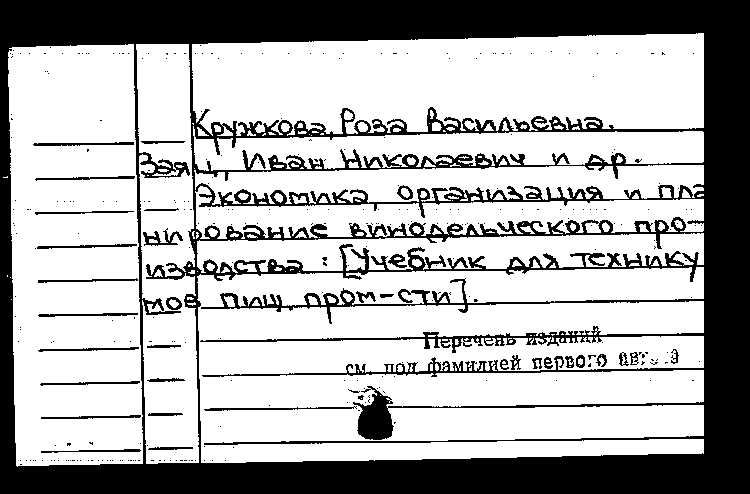 Кружкова, Роза Васильевна.
Заяц, Иван Николаевич и др.
Экономика, организация и пла
нирование винодельческого про-
изводства : [Учебник для технику
мов пищ. пром-сти].
Перечень изданий
см. под фамилией первого автора